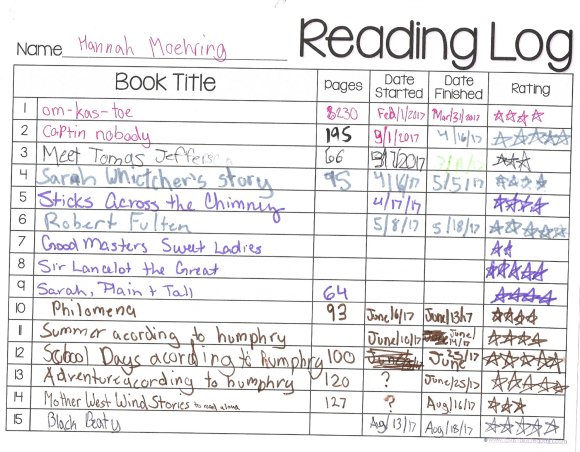 Name Hannah Moehring Reading Log
Book Title pages Date Started Date Finished Rating
1 om-kas-toe 230 Feb/1/2017 Mar/31/2017
2 Captin nobody 195 3/1/2017 4/16/17
3 Meet Tomas Jefferson 66 3/7/2017
4 Sarah Whictcher's story 95 4/6/17 5/5/17
5 Sticks Across the Chimney 4/17/17
6 Robert Fulten 5/8/17 5/18/17
7 Good Masters Sweet Ladies
8 Sir Lancelot the Great
9 Sarah, Plain + Tall 64
10 Philomena 93 June/6/17 June/13/17
11 Summer acording to humphry June/10/17 June/14/17
12 School Days acording to humphry 100 June 23/17
13 Adventure acording to humphry 120 ? June/25/17
14 Mother West Wind Stories to read aloud 127 ? Aug/16/17
15 Black Beaty Aug/13/17 Aug/18/17